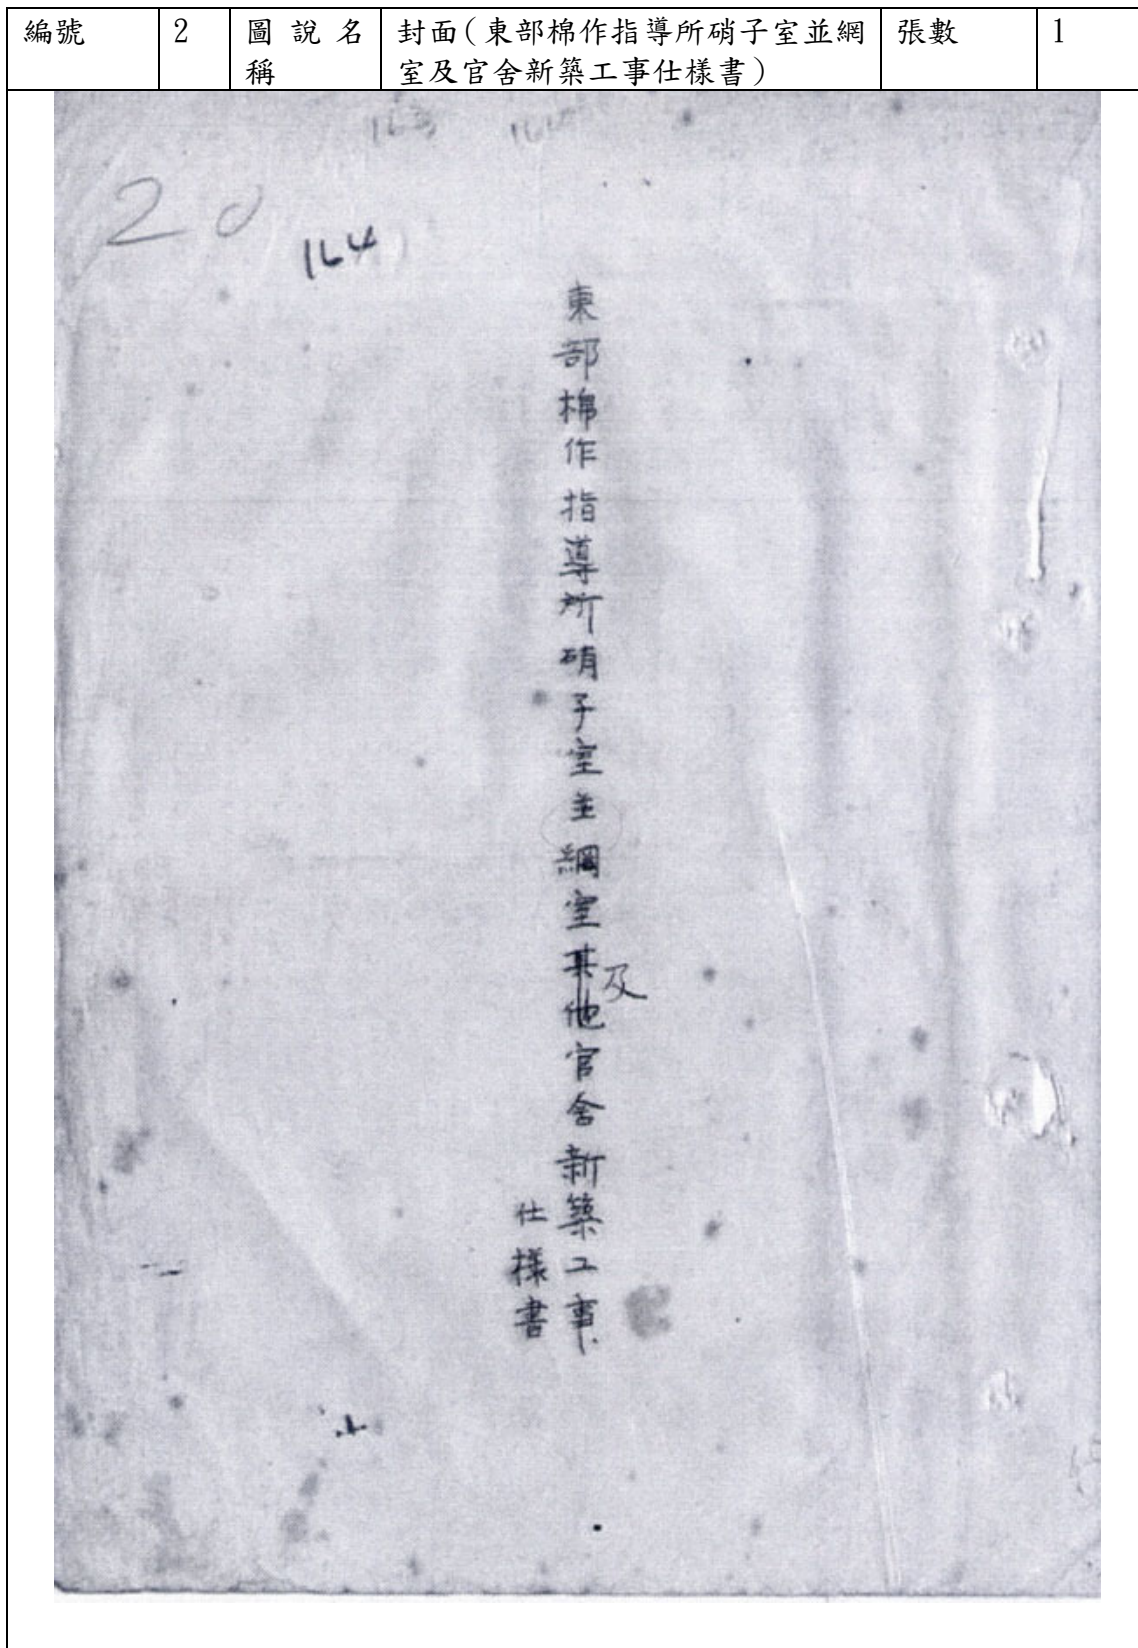 編號 2 圖說名稱 封面(東部棉作指導所硝子室並網室及官舍新築工事仕樣書) 張數 1
163
20
164
東部棉作指導所硝子室並網室其他官舍新築工事
及
仕樣書